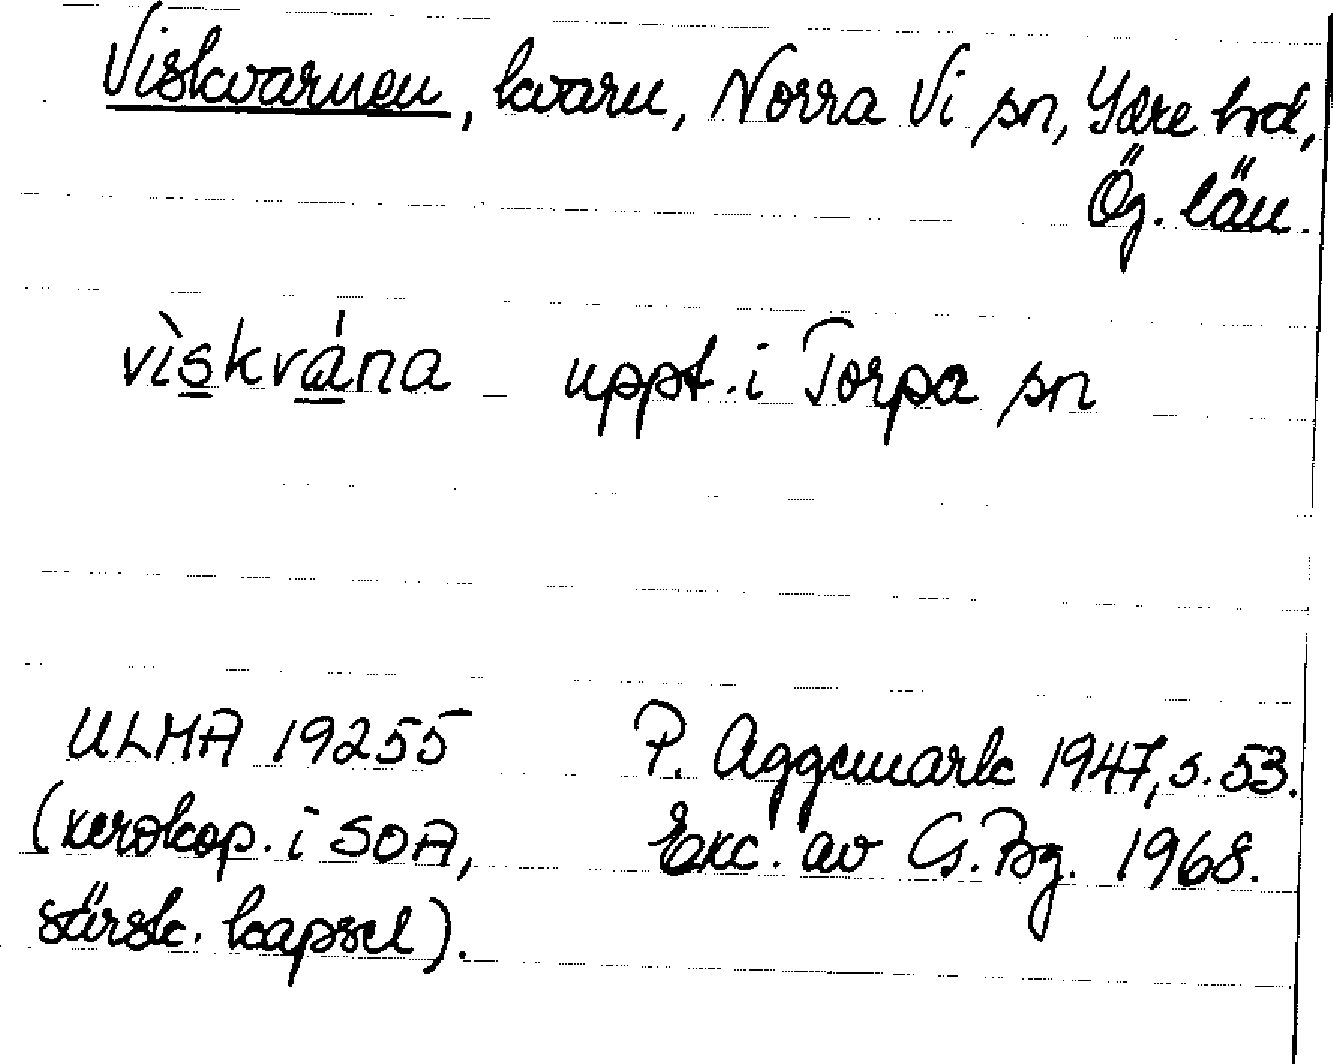 Viskvarnen, kvarn, Norra Vi sn, Ydre hd,
Ög. län.
vìskvána _ uppt. i Torpa sn
ULMA 19255
(xerokop. i SOA,
särsk. kapsel).
P. Aggemark 1947, s. 53.
Exc. av G. Bg. 1968.